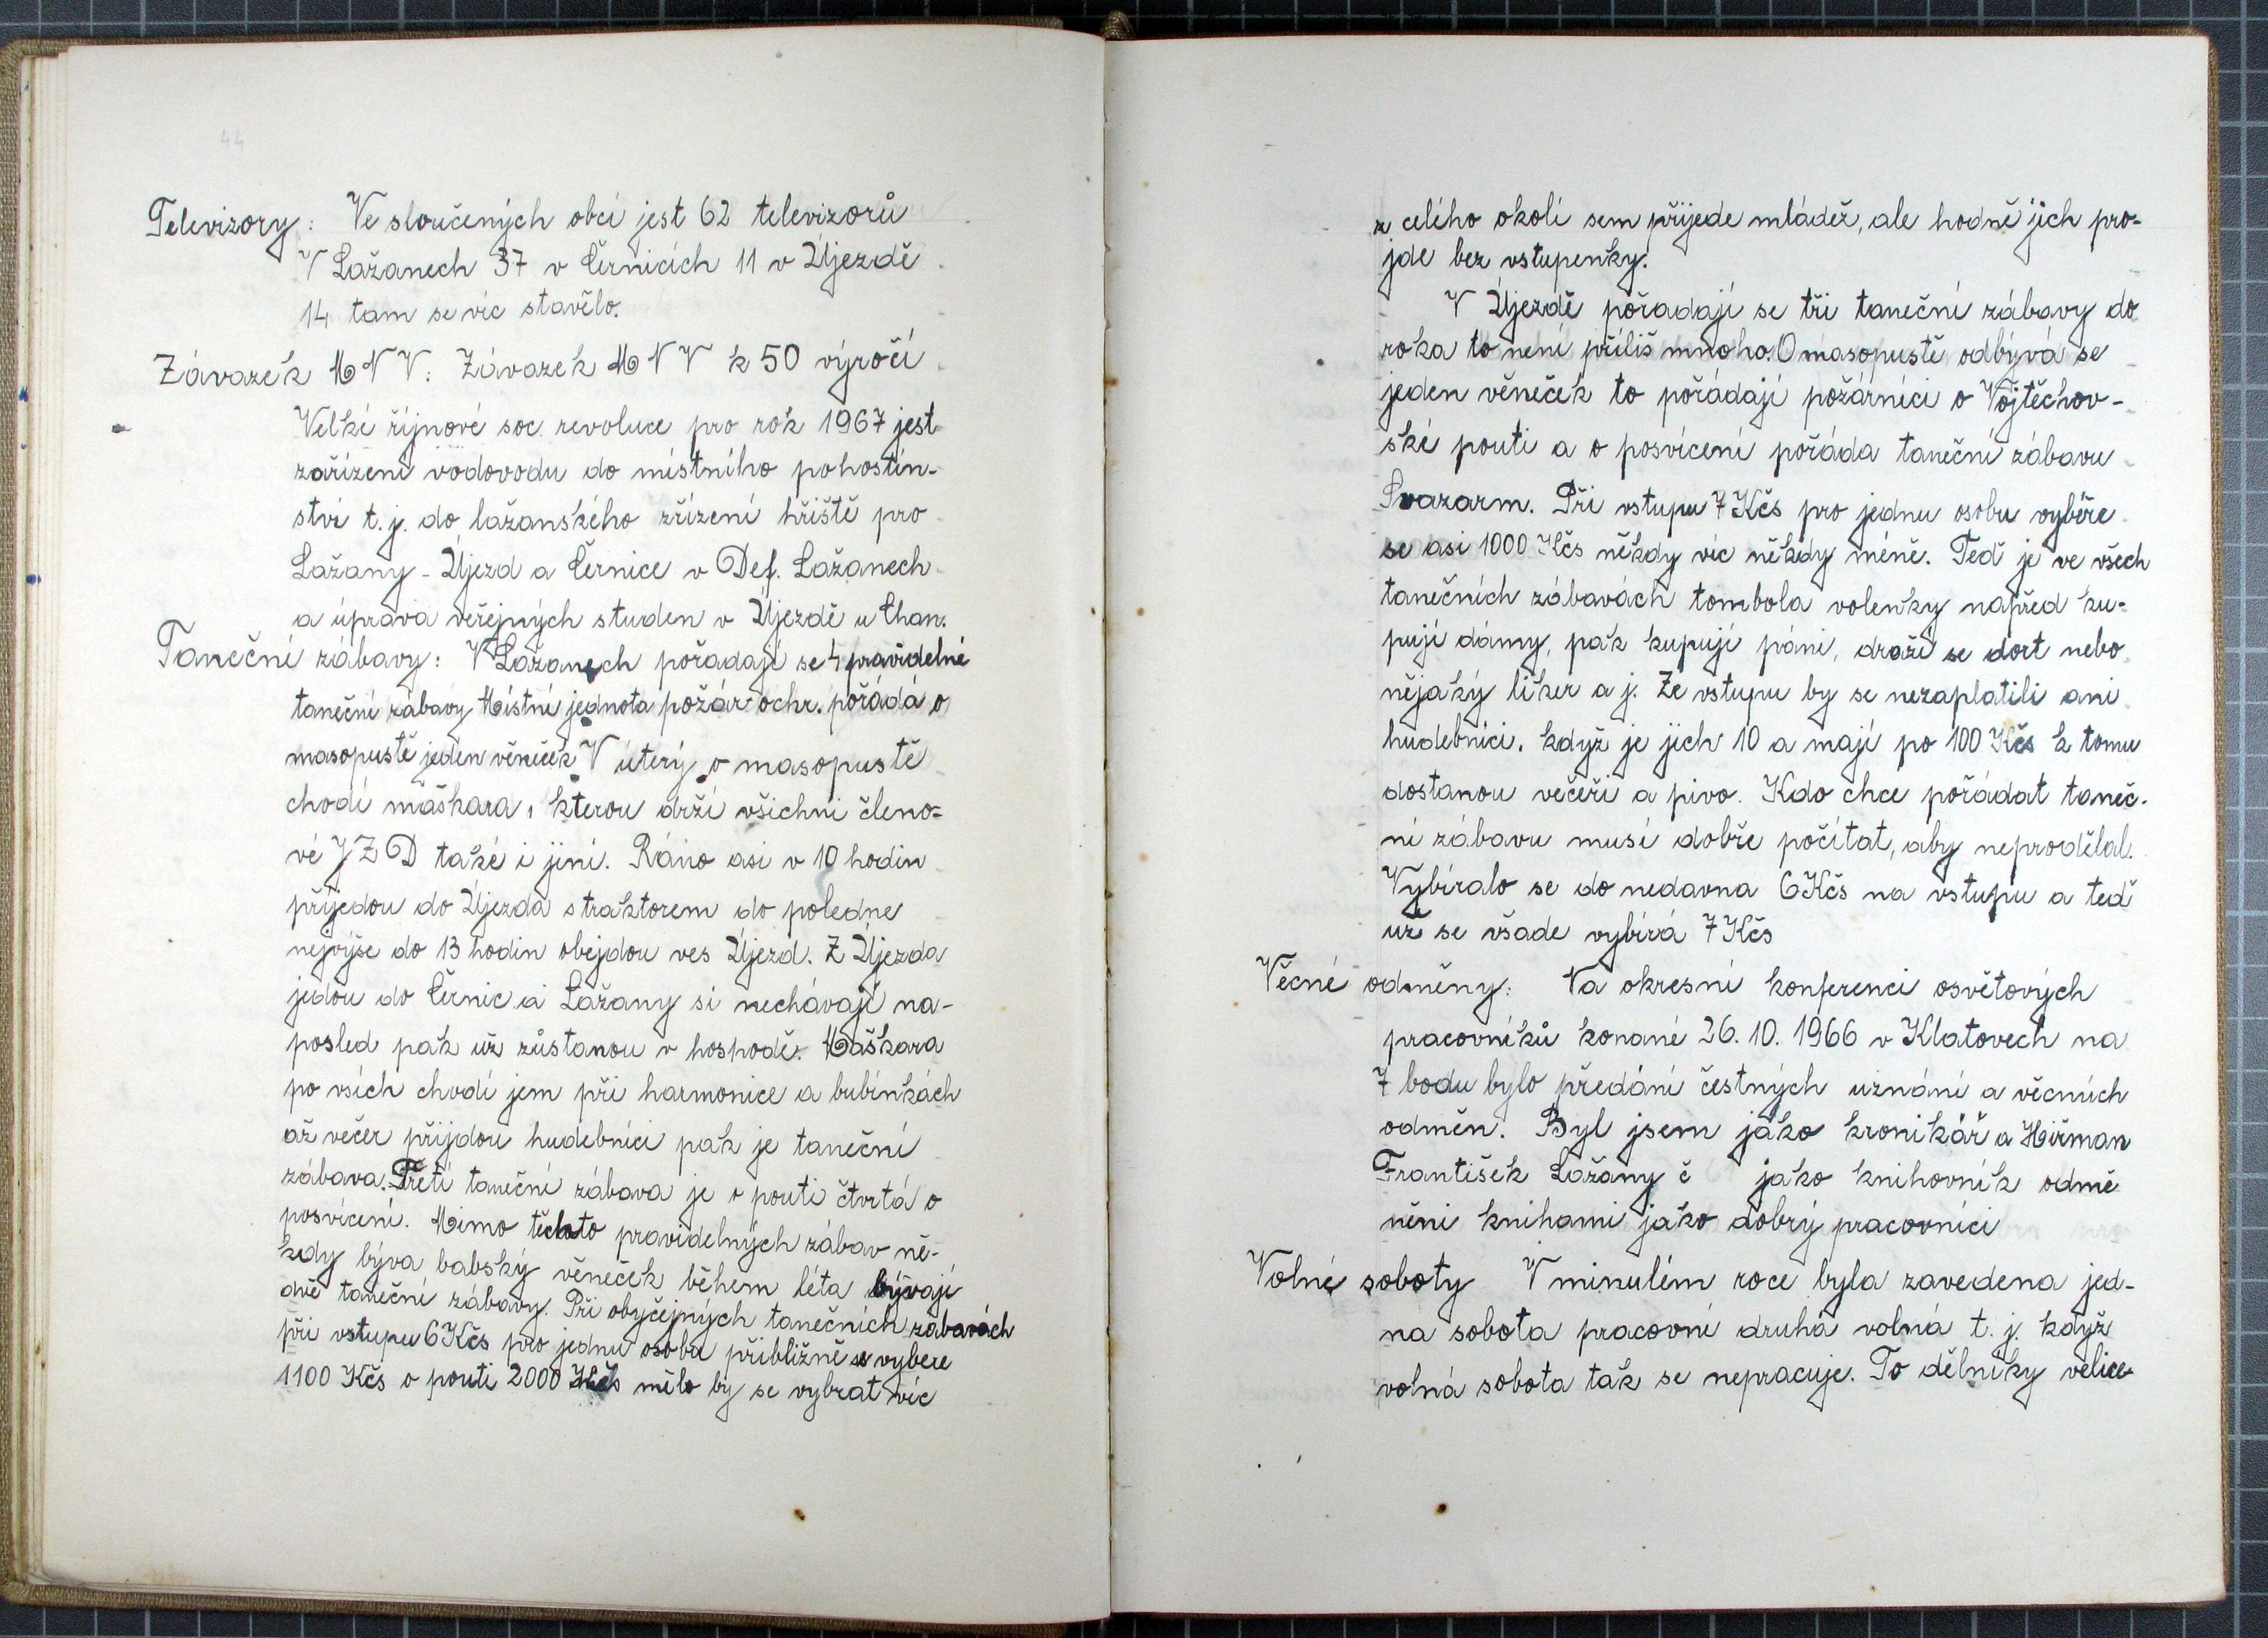 44
Televizory: Ve sloučených obcí jest 62 televizorů
V Lažanech 37 v Černicích 11 v Újezdě
14 tam se víc stavělo.
Závazek MNV: Závazek MNV k 50 výročí
Velké říjnové soc. revoluce pro rok 1967 jest
zařízení vodovodu do místního pohostin-
ství t.j. do lažanského zřízení hřiště pro
Lažany - Újezd a Černice v Def. Lažanech
a úprava veřejných studen v Újezdě u Chan.
Taneční zábavy: V Lažanech pořadají se 4 pravidelné
taneční zábavy Místní jednota požár ochr. pořádá o
masopustě jeden věneček V úterý o masopustě
chodí máškara, kterou drží všichni členo-
vé JZD také i jiní. Ráno asi v 10 hodin
přijedou do Újezda s traktorem do poledne
nejvýše do 13 hodin obejdou ves Újezd. Z Újezda
jedou do Černic a Lažany si nechávají na-
posled pak už zůstanou v hospodě. Maškara
po vsích chodí jem při harmonice a bubínkách
až večer přijdou hudebníci pak je taneční
zábava. Třetí taneční zábava je o pouti čtvrtá o
posvícení. Mimo těchto pravidelných zábav ně-
kdy býva babský věneček během léta bývají
dvě taneční zábavy. Při obyčejných tanečních zábavách
při vstupu 6 Kčs pro jednu osobu přibližně se vybere
1100 Kčs o pouti 2000 Kčs mělo by se vybrat víc
z celého okolí sem přijede mládež, ale hodně jich pro-
jde bez vstupenky.
V Újezdě pořadají se tři taneční zábavy do
roka to není příliš mnoho. O masopustě odbývá se
jeden věneček to pořádají požárníci o Vojtěchov-
ské pouti a o posvícení pořáda taneční zábavu
Svazarm. Při vstupu 7 Kčs pro jednu osobu vybíře
se asi 1000 Kčs někdy víc někdy méně. Teď je ve všech
tanečních zábavách tombola volenky napřed ku-
pují dámy, pak kupují páni, draží se dort nebo
nějaký liker a j. Ze vstupu by se nezaplatili ani
hudebníci, když je jich 10 a mají po 100 Kčs k tomu
dostanou večeři a pivo. Kdo chce pořádat taneč-
ní zábavu musí dobře počítat, aby neprodělal.
Vybíralo se do nedavna 6 Kčs na vstupu a teď
už se všade vybírá 7 Kčs
Věcné odměny: Na okresní konferenci osvětových
pracovníků konané 26. 10. 1966 v Klatovech na
7 bodu bylo předání čestných uznání a věcních
odměn. Byl jsem jako kronikář a Hiřman
František Lažany č jako knihovník odmě
něni knihami jako dobrý pracovníci
Volné soboty V minulém roce byla zavedena jed-
na sobota pracovní druhá volná t. j. když
volná sobota tak se nepracuje. To dělníky velice